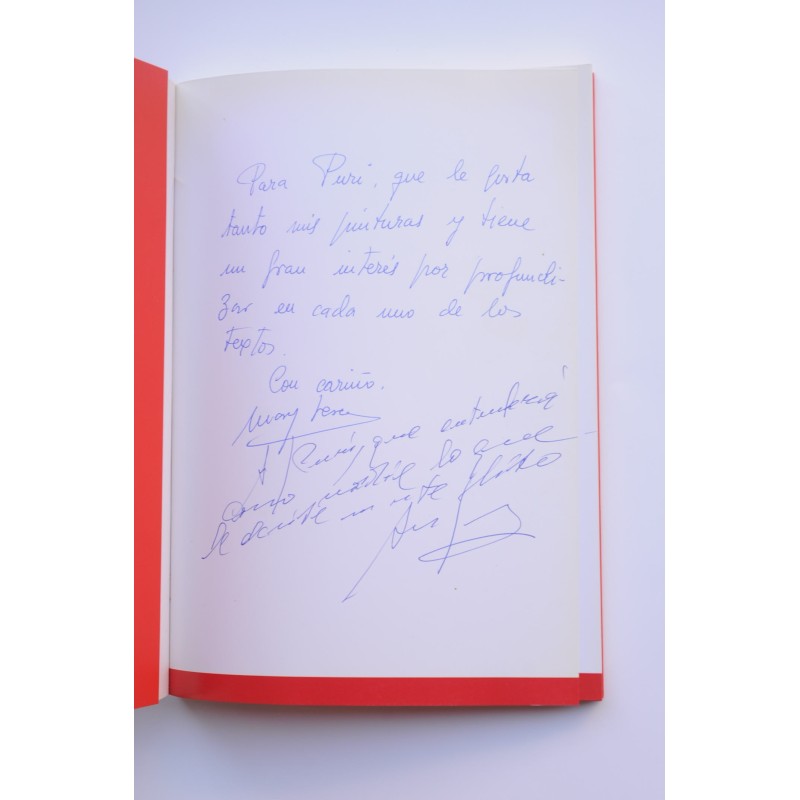 Para Puri, que le gusta
tanto mis pinturas y tiene
un gran interés por profundi-
zar en cada uno de los
textos.
Con cariño.
Mary
A que entenderá
como nadie lo que
se en este